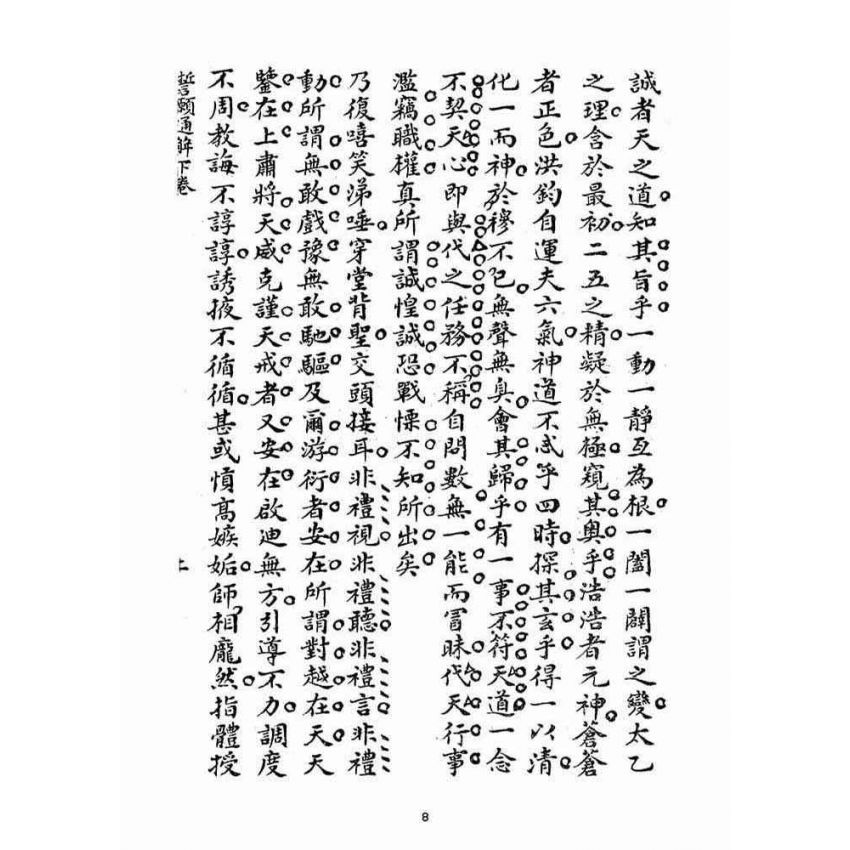 誠者天之道知其旨乎一動一靜互為根一闔一闢謂之變太乙
之理含於最初二五之精凝於無極窺其奧乎浩浩者元神蒼蒼
者正色洪鈞自運夫六氣神道不忒乎四時探其玄乎得一以清
化一而神於穆不已無聲無臭會其歸乎有一事不符天道一念
不契天心即與代之任務不稱自問數無一能而冒昧代天行事
濫竊職權真所謂誠惶誠恐戰慄不知所出矣
乃復嘻笑涕唾穿堂背聖交頭接耳非禮視非禮聽非禮言非禮
動所謂無敢戲豫無敢馳驅及爾游衍者安在所謂對越在天天
鑒在上肅將天威克謹天戒者又安在啟迪無方引導不力調度
不周教誨不諄諄誘掖不循循甚或憤高嫉妬師相龐然指體授
誓願通解下卷
上
8